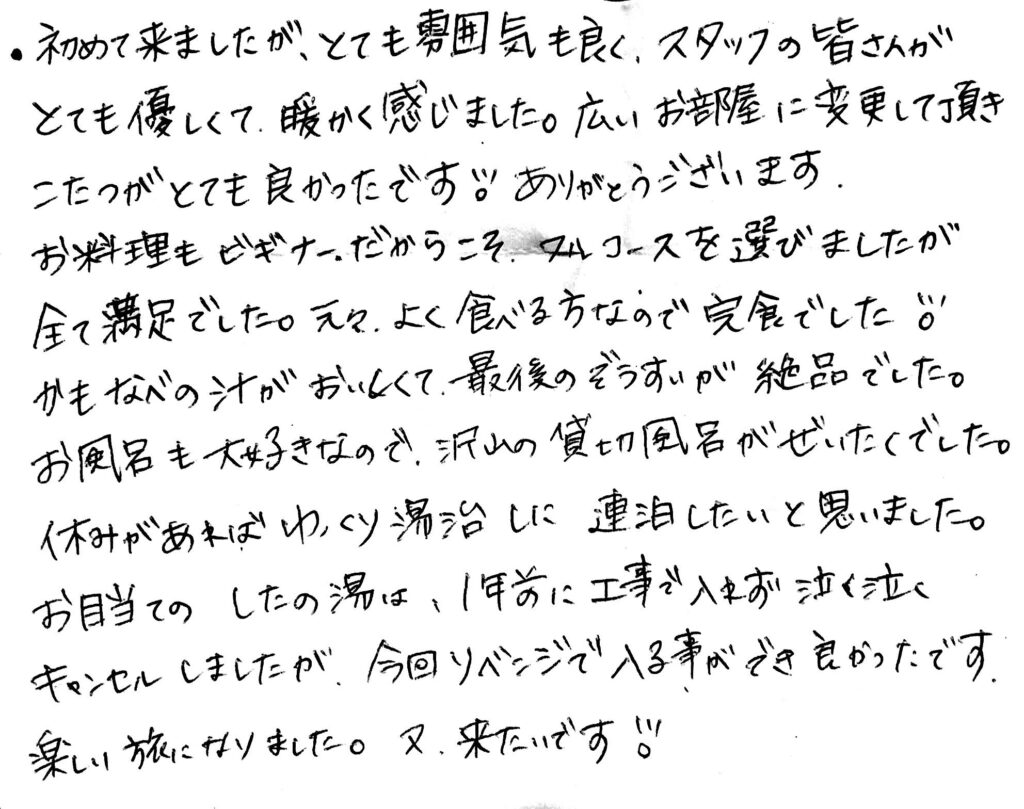 ・初めて来ましたが、とても雰囲気も良く、スタッフの皆さんが
とても優しくて、暖かく感じました。広いお部屋に変更して頂き
こたつがとても良かったです!! ありがとうございます.
お料理もビギナーだからこそ、フルコースを選びましたが
全て満足でした。元々、よく食べる方なので完食でした!!
かもなべの汁がおいしくて、最後のぞうすいが絶品でした。
お風呂も大好きなので、沢山の貸切風呂がぜいたくでした。
休みがあればゆっくり湯治しに連泊したいと思いました。
お目当てのしたの湯は、1年前に工事で入れず泣く泣く
キャンセルしましたが、今回リベンジで入る事ができ良かったです.
楽しい旅になりました。又、来たいです!!!